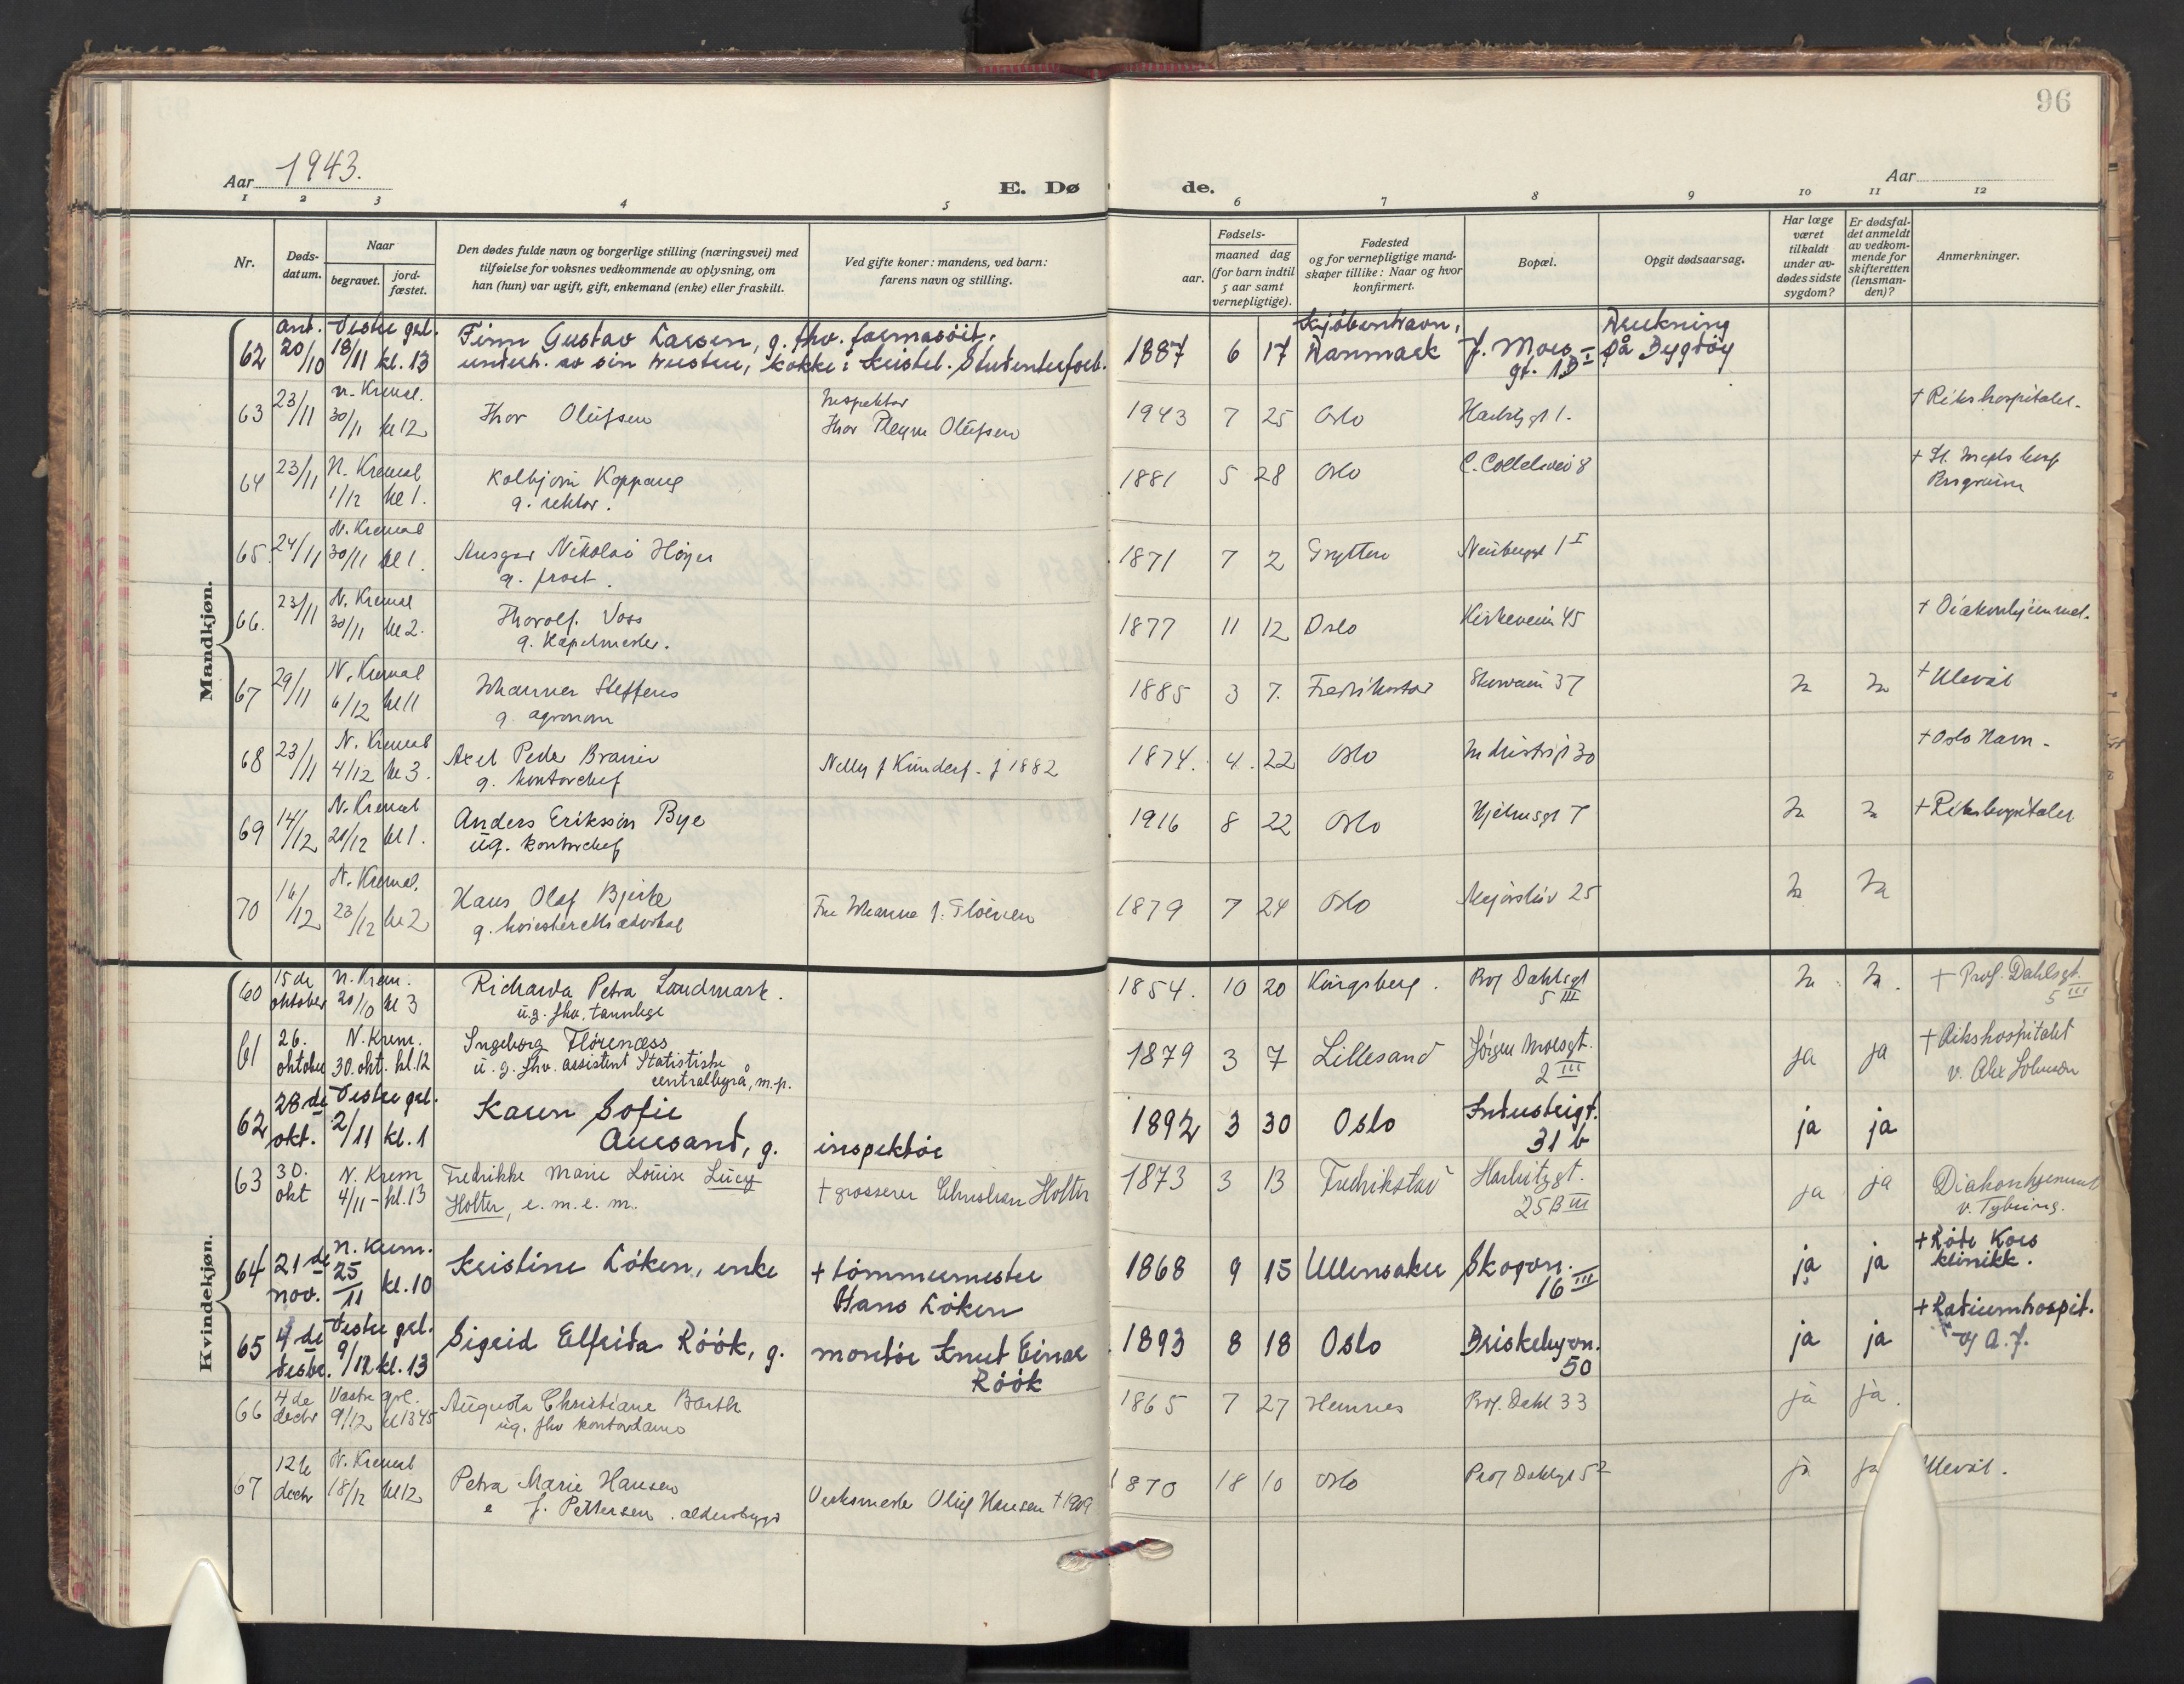 96
Aar 1943.
E. Døde.
Aar
1 2 3 4 5 6 7 8 9 10 11 12
Nr.
Døds-
datum.
Naar
begravet.
jord-
fæstet.
Den dødes fulde navn og borgerlige stilling (næringsvei) med
tilføielse for voksnes vedkommende av oplysning, om
han (hun) var ugift, gift, enkemand (enke) eller fraskilt.
Ved gifte koner: mandens, ved barn:
farens navn og stilling.
Fødsels-
aar.
maaned dag
(for barn indtil
5 aar samt
vernepligtige).
Fødested
og for vernepligtige mand-
skaper tillike: Naar og hvor
konfirmert.
Bopæl.
Opgit dødsaarsag.
Har læge
været
tilkaldt
under av-
dødes sidste
sygdom?
Er dødsfal-
det anmeldt
av vedkom-
mende for
skifteretten
(lensman-
den)?
Anmerkninger.
Mandkjøn.
62 ant. 20/10 Vestre grl. 18/11 kl. 13 Finn Gustav Larsen, g. fhv. farmasöit,
underh. av sin hustru, kokke i Kristel. Studenterforb.
1887 6 17 Kjöbenhavn, Danmark J. Moes gt. 1B I Drukning på Bygdöy
63 23/11 N. Kremat. 30/11 kl 12 Thor Olufsen
Inspektør Thor Olufsen
1943 7 25 Oslo + Rikshospitalet.
64 23/11 N. Kremat 1/12 kl 1. Kolbjørn Koppang
g. rektor.
1881 5 28 Oslo C. Colletsvei 8
65. 24/11 N. Kremat 30/11 kl 1. Ansgar Nikolai Höyer
g. prost.
1871 7 2 Grytten Neubergt 1 I
66. 23/11 N. Kremat 30/11 kl 2. Thorolf Voss
g. Kapelmester.
1877 11 12 Oslo Kirkeveien 45 + Diakonhjemmet.
67 29/11 N. Kremat 6/12 kl 11 Steffens
g. agronom
1885 3 7. Fredrikstad 37 Ja Ja + Ulevål
68 23/11 N. Kremat 4/12 kl 3. Axel Peder
g. kontorchef
Nelly f 1882
1874. 4. 22 Oslo Industrigt 30 + Oslo Havn.
69 14/12 N. Kremat 21/12 kl 1. Anders Eriksson Bye
ug. kontorchef
1916 8 22 Oslo Hjelmsgt 7 Ja Ja + Rikshospitalet
70 16/12 N. Kremat. 23/12 kl 2 Hans Olaf Bjerke
g. høiesterettsadvokat
1879 7 24 Oslo Majorstuv 25 Ja Ja
Kvindekjøn.
60 15 de oktober N. Krem. 20/10 kl 3 Richarda Petra Landmark.
u.g. fhv. tannlege
1854. 10 20 Kongsberg. Prof Dahlsgt 5 III Ja. Ja. + Prof. Dahlsgt. 5 III
61 26. oktober N. Krem. 30. okt. kl. 12 Ingeborg Flörenæss
u. g. fhv. assistent Statistiske
centralbyrå, m.p.
1879 3 7 Lillesand Jörgen Moesgt. 2 III ja ja + Rikshospitalet
62 28 de okt. Vestre grl. 2/11 kl. 1 Karen Sofie
Auesand, g. inspektör
1892 3 30 Oslo Industrigt. 31 b ja ja
63 30. okt N. Krem 4/11 - kl. 13 Fredrikke Marie Louise Lucy
Holter, e. m. e. m. + grosserer Christian Holter
1873 3 13 Fredrikstad Harbitzgt. 25 B III ja ja Diakonhjemmet
64 21 de nov. N. Krem. 25/11 kl. 10 Kristine Löken, enke + tömmermester
Hans Löken
1868 9 15 Ullensaker Skogvn. 16 III ja ja + Röde Kors
klinikk.
65 4 de desbr. Vestre grl. 9/12 kl. 13 Sigrid Elfrida Röök, g. montör Knut Einar
Röök
1893 8 18 Oslo Briskebyvn. 50 ja ja + Radiumhospit.
66 4 de decbr Vestre grl. 9/12 kl 1345 Augusta Christiane Barth
ug. fhv kontordame
1865 7 27 Hemnes Prof. Dahl 33 ja ja.
67 12 te decbr N. Kremat 18/12 kl 12 Petra Marie Hansen
e f. Pettersen. alderstrygd Verksmester Oluf Hansen + 1909
1870 18 10 Oslo Prof Dahlsgt 5 2 ja ja Ulevål.